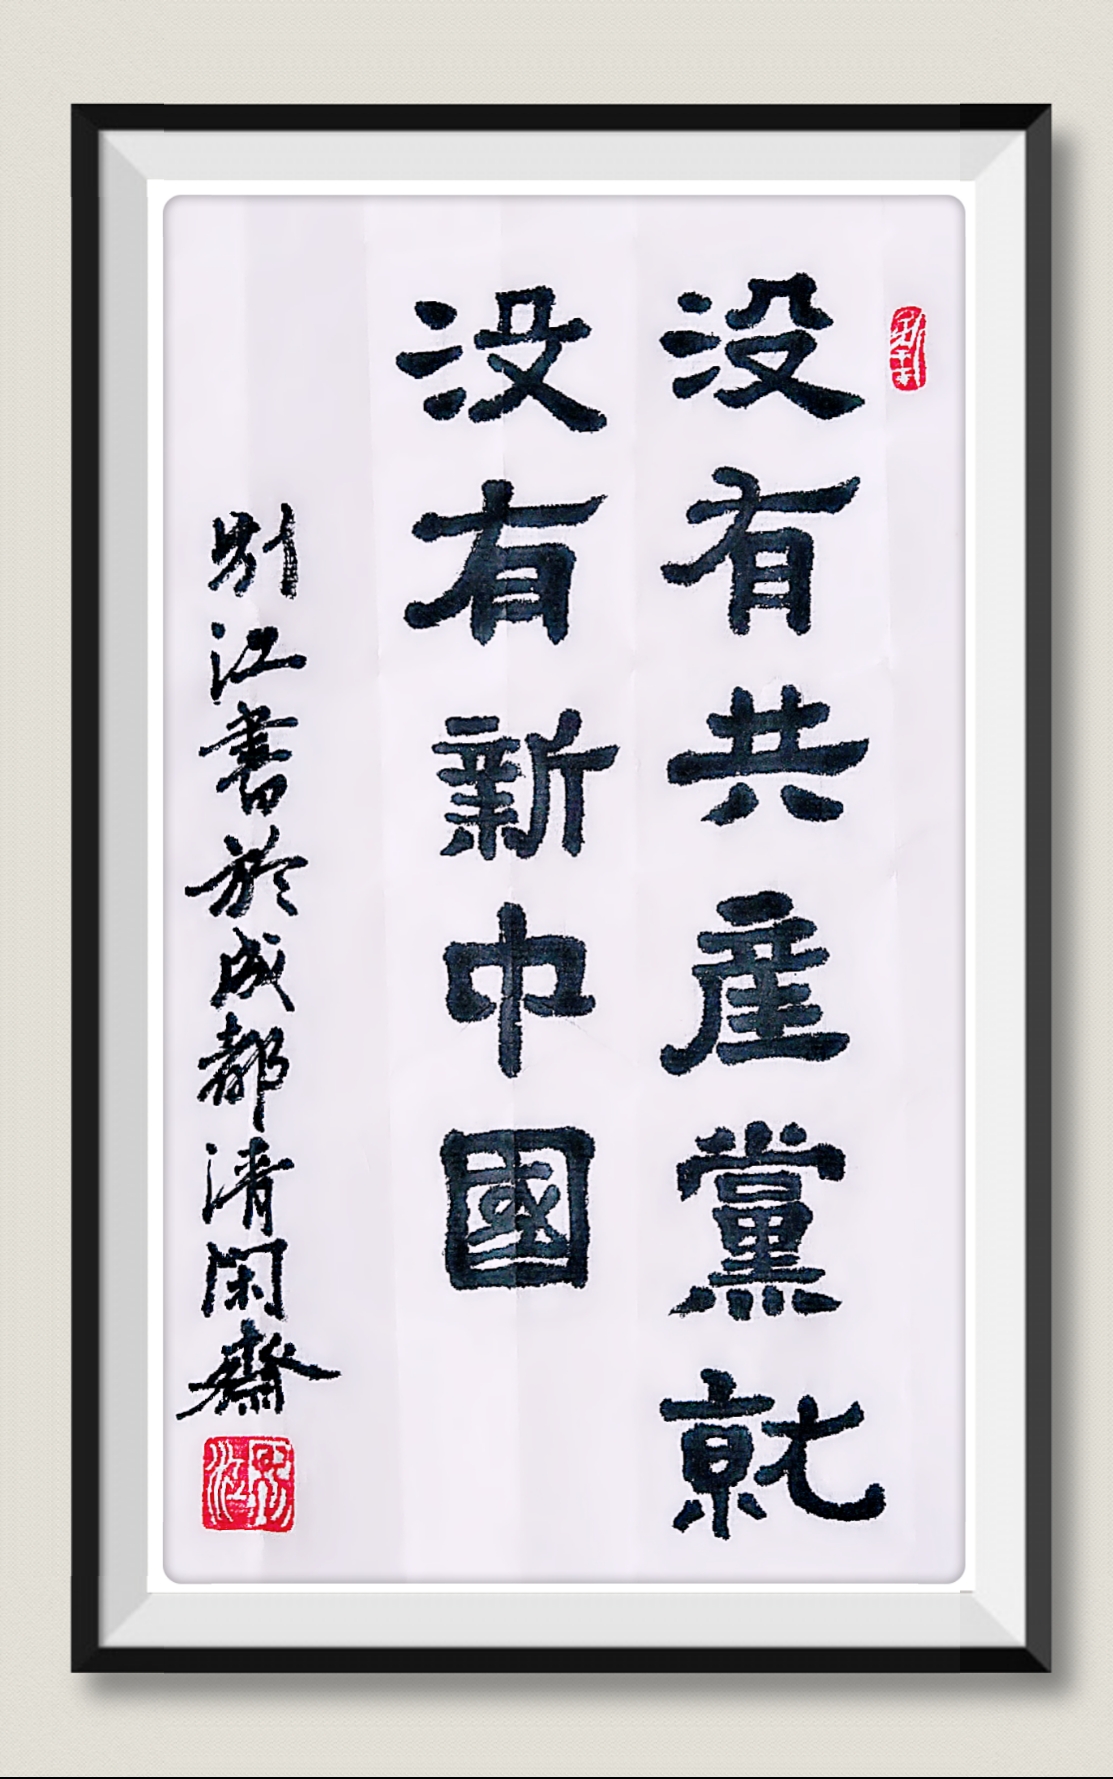 没有共産黨就
没有新中國
别江書於成都清閑齋